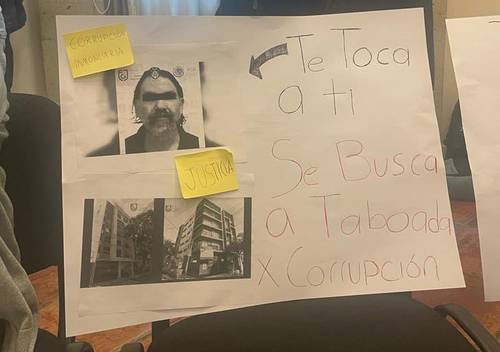 CORRUPCIÓN
INMOBILIARIA
Te Toca
a ti
JUSTICIA
Se Busca
a Taboada
x Corrupción